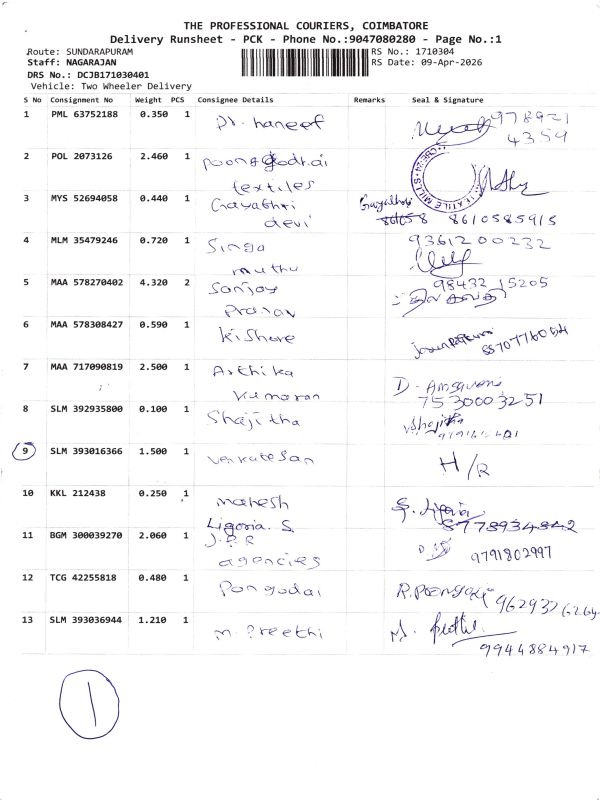 THE PROFESSIONAL COURIERS, COIMBATORE
Delivery Runsheet - PCK - Phone No.:9047080280 - Page No.:1
Route: SUNDARAPURAM
RS No.: 1710304
Staff: NAGARAJAN
RS Date: 09-Apr-2026
DRS No.: DCJB171030401
Vehicle: Two Wheeler Delivery
S No Consignment No Weight PCS Consignee Details Remarks Seal & Signature
1 PML 63752188 0.350 1 Dr. haneef 978921
4359
2 POL 2073126 2.460 1
textiles
3 MYS 52694058 0.440 1 Gayathri 8610585915
devi
4 MLM 35479246 0.720 1 Singa 9361200232
muthu
5 MAA 578270402 4.320 2 Sanjay 98432 15205
Pranav
6 MAA 578308427 0.590 1 Kishore
7 MAA 717090819 2.500 1 Arthika
Kumaran 7530003251
8 SLM 392935800 0.100 1 Shajitha
9 SLM 393016366 1.500 1 Venkatesan H/R
10 KKL 212438 0.250 1 mahesh
Ligoria. S 8778934842
11 BGM 300039270 2.060 1 J.P.R
agencies 9791802997
12 TCG 42255818 0.480 1 Pongodai
13 SLM 393036944 1.210 1 M. Preethi
9944884917
1